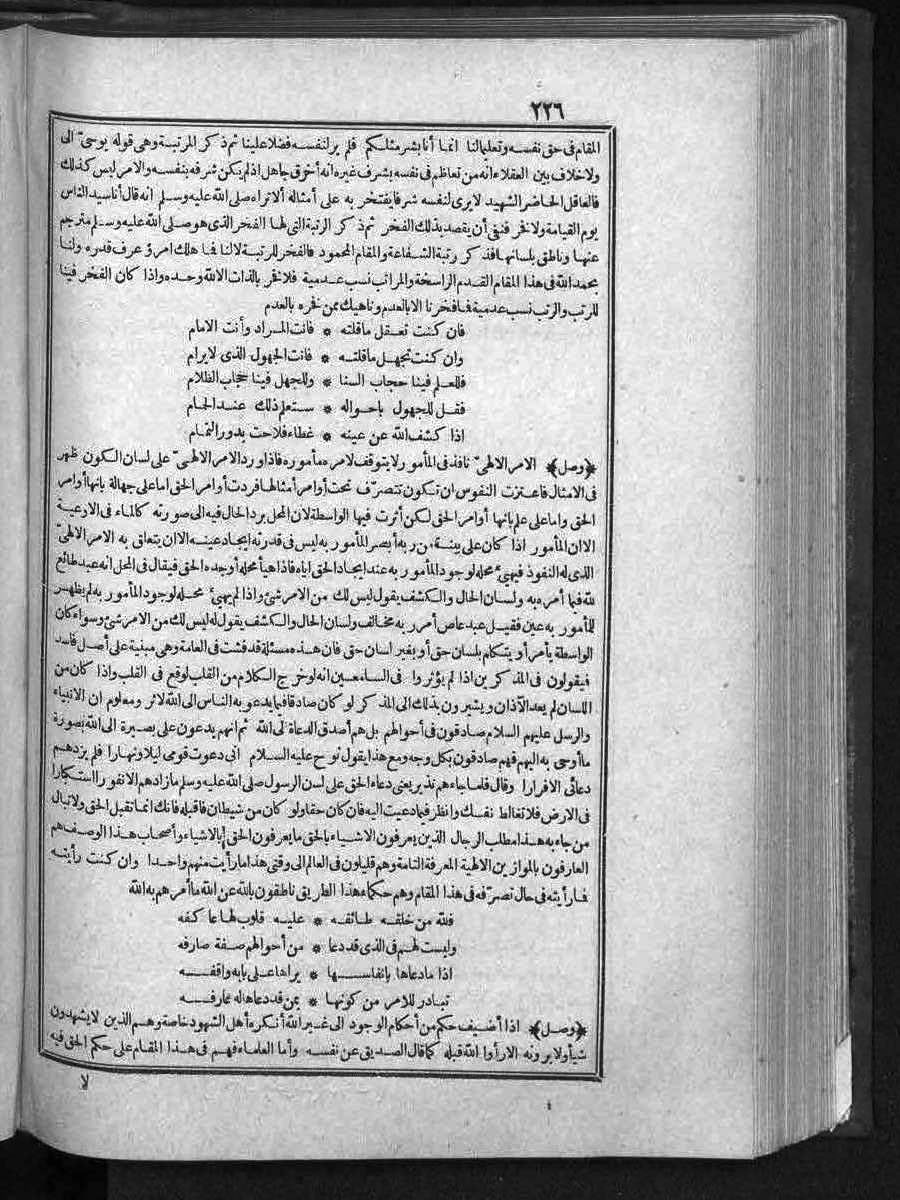 ٢٢٦
المقام فى حق نفسه وتعليما لنا انما أنا بشر مثلكم فلم ير لنفسه فضلا علينا ثم ذكر المرتبة وهى قوله يوحى الى
ولا خلاف بين العقلاء انه من تعاظم فى نفسه بشرف غيره انه أخرق جاهل اذ لم يكن شرفه بنفسه والامر ليس كذلك
فالعاقل الحاضر الشهيد لا يرى لنفسه شرفا يفتخر به على أمثاله ألا تراه صلى الله عليه وسلم انه قال أنا سيد الناس
يوم القيامة ولا فخر فنفى أن يقصد بذلك الفخر ثم ذكر الرتبة التى لها الفخر الذى هو صلى الله عليه وسلم مترجم
عنها وناطق بلسانها فذكر رتبة الشفاعة والمقام المحمود فالفخر للرتبة لا لنا فما هلك امرؤ عرف قدره ولنا
بحمد الله فى هذا المقام القدم الراسخة والمراتب نسب عدمية فلا فخر بالذات الا لله وحده واذا كان الفخر فينا
للرتب والرتب نسب عدمية فما فخرنا الا بالعدم وناهيك ممن فخره بالعدم
فان كنت تعقل ما قلته * فانت المراد وأنت الامام
وان كنت تجهل ما قلته * فانت الجهول الذى لا يرام
فللعلم فينا حجاب السنا * وللجهل فينا حجاب الظلام
فقل للجهول باحواله * ستعلم ذلك عند الحمام
اذا كشف الله عن عينه * غطاء فلاحت بدور التمام
﴿وصل﴾ الامر الالهىّ نافذ فى المأمور لا يتوقف لامره مأموره فاذا ورد الامر الالهىّ على لسان الكون ظهر
فى الامثال فاعتزت النفوس ان تكون تتصرّف تحت أوامر أمثالها فردت أوامر الحق اما على جهالة بانها أوامر
الحق واما على علم بانها أوامر الحق لكن أثرت فيها الواسطة لان المحل يرد الحال فيه الى صورته كالماء فى الاوعية
الا ان المأمور اذا كان على بينة من ربه أبصر المأمور به ليس فى قدرته ايجاد عينه الا ان يتعلق به الامر الالهىّ
الذى له النفوذ فيهيئ محله لوجود المأمور به عند ايجاد الحق اياه فاذا هيأ محله أوجده الحق فيقال فى المحل انه عبد طائع
لله فيما أمره به ولسان الحال والكشف يقول ليس لك من الامر شئ واذا لم يهيئ محله لوجود المأمور به لم يظهر
للمأمور به عين فقيل عبد عاص أمر ربه مخالف ولسان الحال والكشف يقول له ليس لك من الامر شئ وسواء كان
الواسطة يأمر أو يتكلم بلسان حق أو بغير لسان حق فان هذه مسئلة قد فشت فى العامة وهى مبنية على أصل فاسد
فيقولون فى المذكرين اذا لم يؤثروا فى السامعين انه لو خرج الكلام من القلب لوقع فى القلب واذا كان من
اللسان لم يعد الآذان ويشيرون بذلك الى المذكر لو كان صادقا فيما يدعو به الناس الى الله لاثر ومعلوم ان الانبياء
والرسل عليهم السلام صادقون فى أحوالهم بل هم أصدق الدعاة الى الله ثم انهم يدعون على بصيرة الى الله بصورة
ما أوحى به اليهم فهم صادقون بكل وجه ومع هذا يقول نوح عليه السلام انى دعوت قومى ليلا ونهارا فلم يزدهم
دعائى الا فرارا وقال فلما جاءهم نذير يعنى دعاء الحق على لسن الرسول صلى الله عليه وسلم ما زادهم الا نفورا استكبارا
فى الارض فلا تغالط نفسك وانظر فيما دعيت اليه فان كان حقا ولو كان من شيطان فاقبله فانك انما تقبل الحق ولا تبال
من جاء به هذا مطلب الرجال الذين يعرفون الاشياء بالحق ما يعرفون الحق بالاشياء وأصحاب هذا الوصف هم
العارفون بالموازين الالهية المعرفة التامة وهم قليلون فى العالم الى وقتى هذا ما رأيت منهم واحدا وان كنت رأيته
فما رأيته فى حال تصرّفه فى هذا المقام وهم حكماء هذا الطريق ناطقون بالله عن الله ما أمرهم به الله
فلله من خلقه طائفه * عليه قلوب لها عاكفه
وليست لهم فى الذى قد دعا * من أحوالهم صفة صارفه
اذا ما دعاها بانفاسها * يراها على بابه واقفه
تبادر للامر من كونها * بمن قد دعاها له عارفه
﴿وصل﴾ اذا أضيف حكم من أحكام الوجود الى غير الله أنكره أهل الشهود خاصة وهم الذين لا يشهدون
شيأ ولا يرونه الا رأوا الله قبله كما قال الصديق عن نفسه وأما العلماء فهم فى هذا المقام على حكم الحق فيه
لا